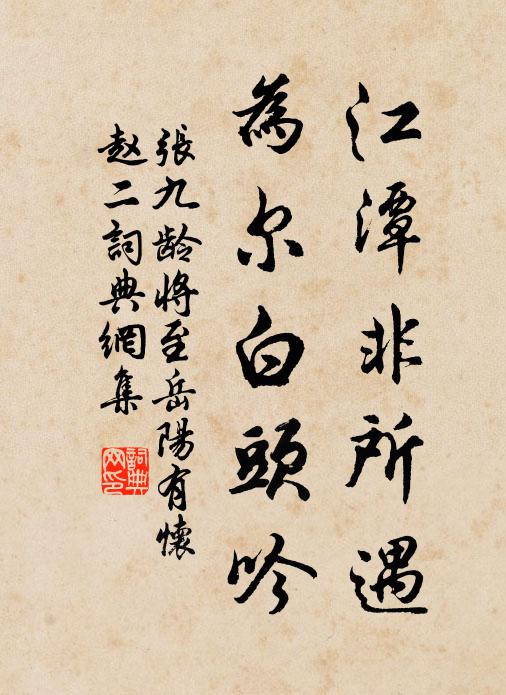 江潭非所遇
為尔白頭吟
張九龄将至岳陽有懷
赵二詞典網集
詞典網印